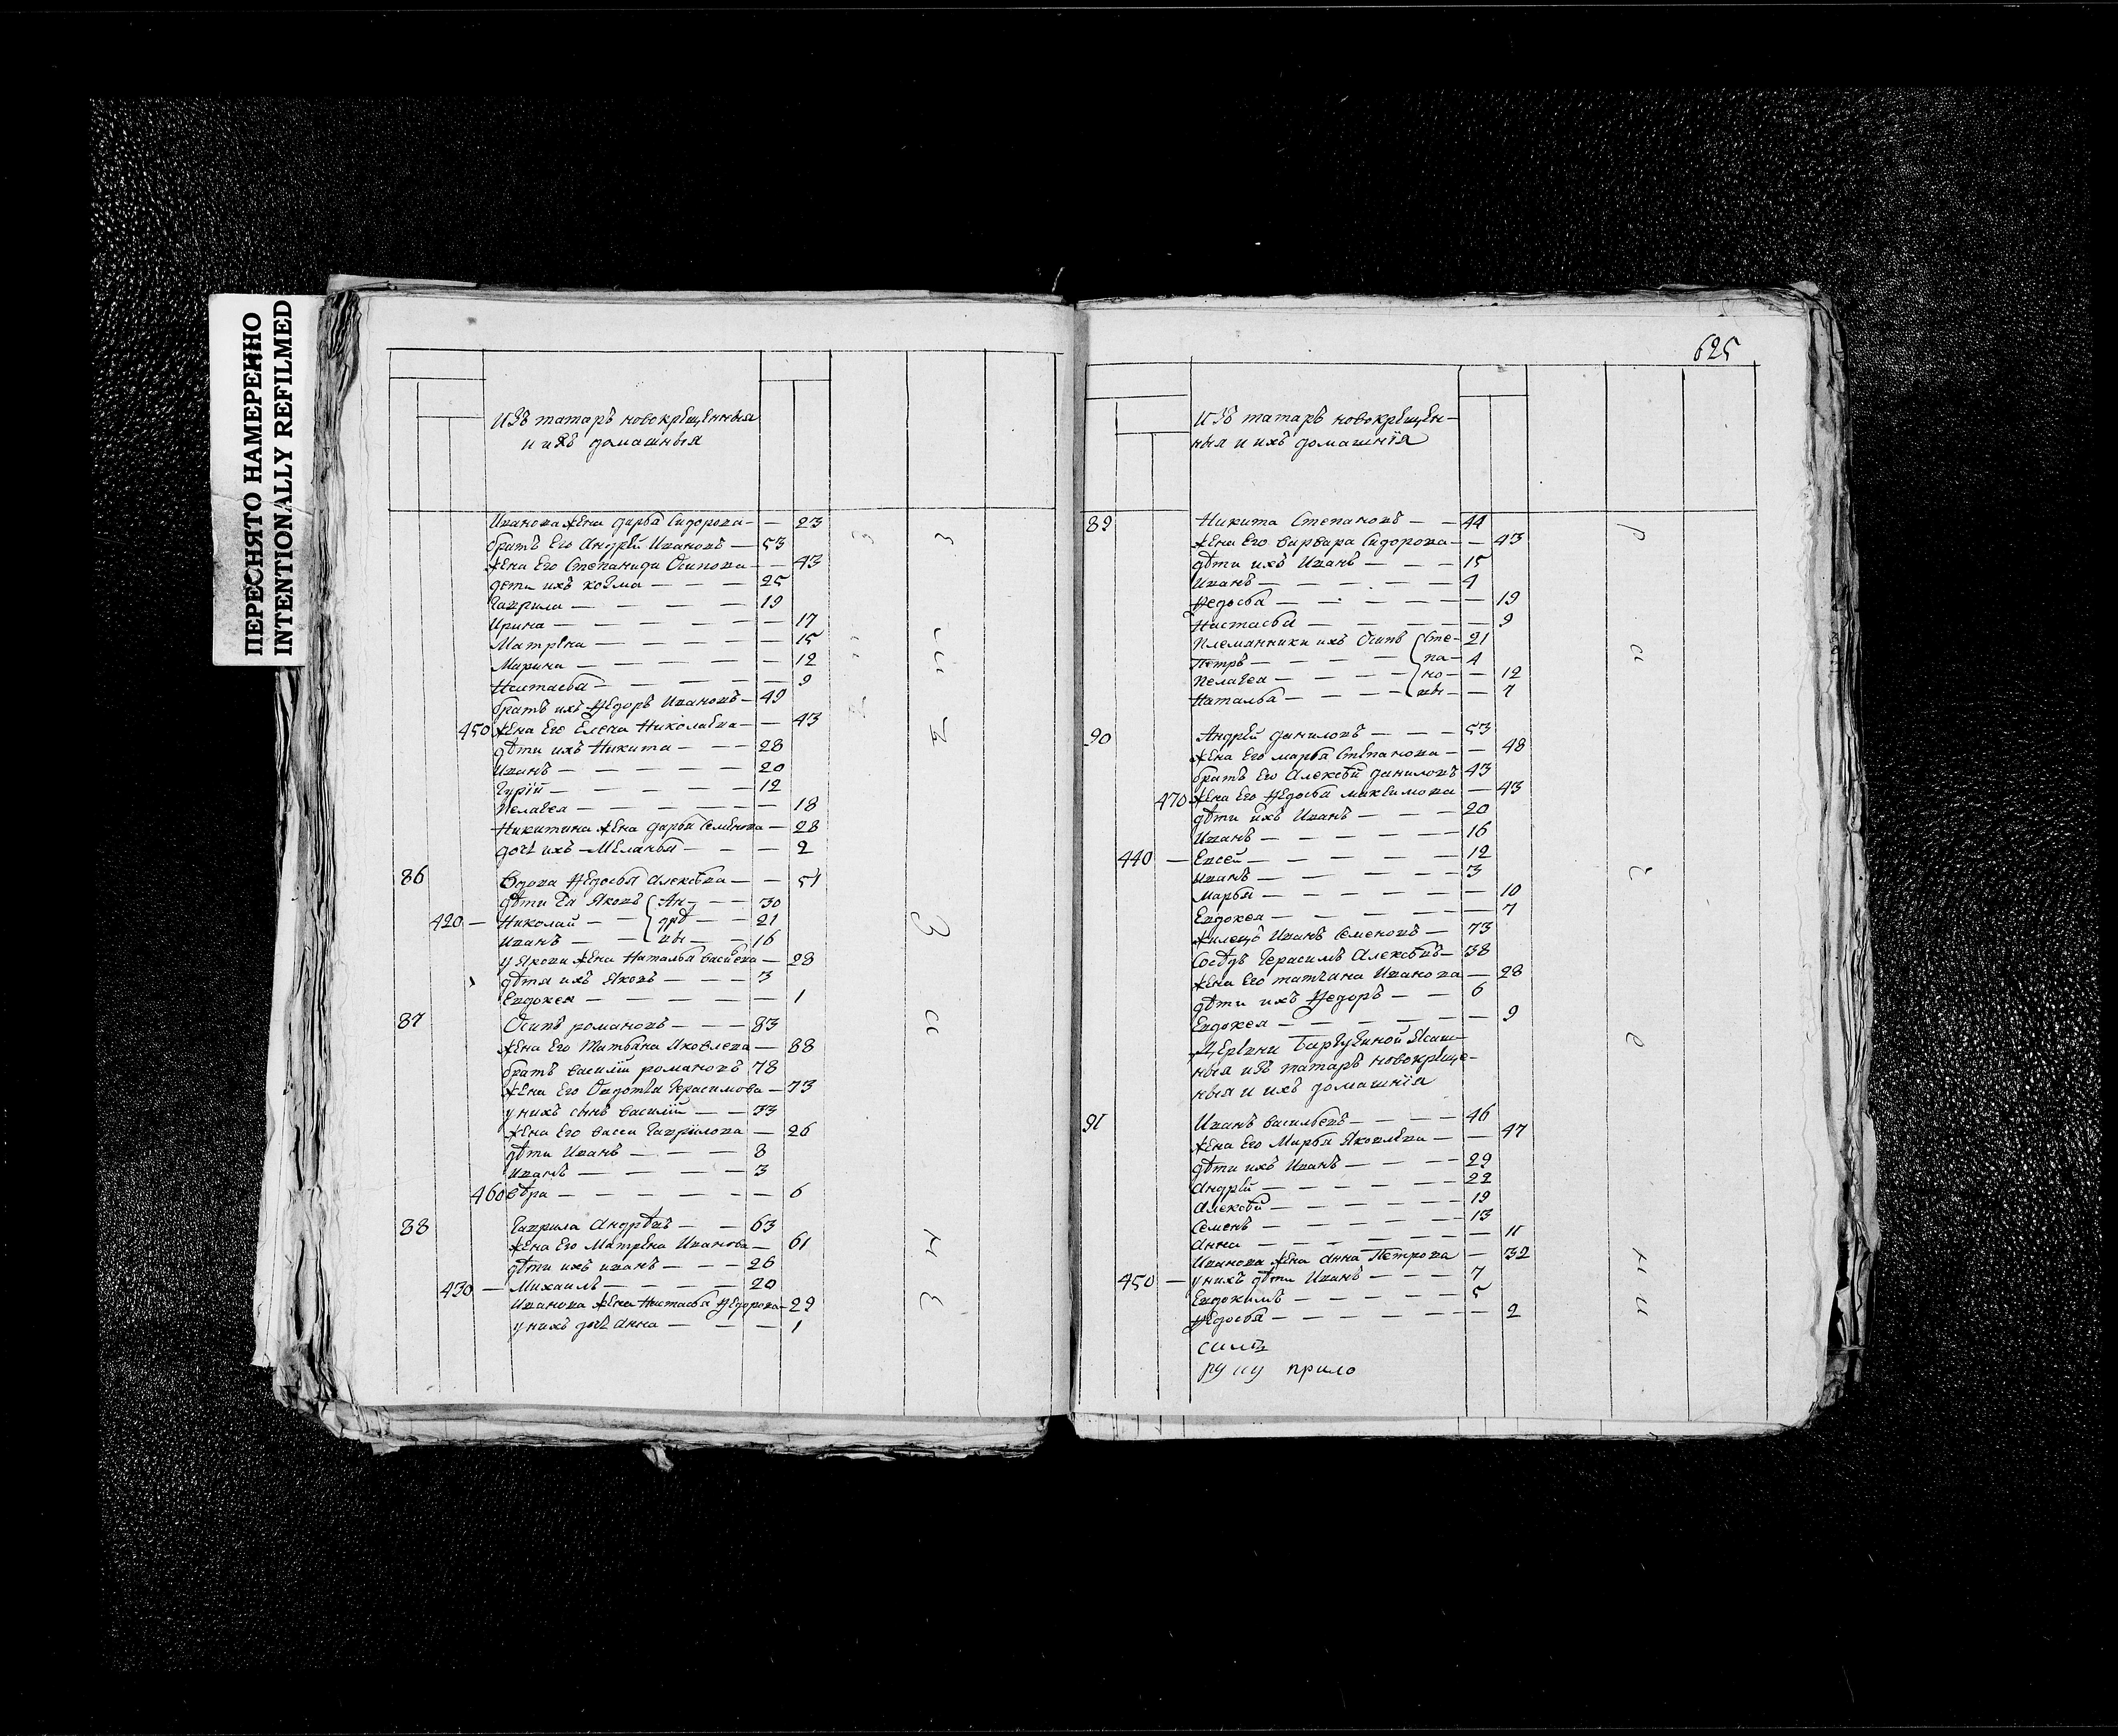 ПЕРЕСНЯТО НАМЕРЕННО
INTENTIONALLY REFILMED
Изъ татаръ новокрещенныя
и ихъ домашныя
Иванова жена Дарья Сидорова — — 23
братъ Его Андрей Ивановъ — 53
жена Его Степанида Осипова — — 43
дети ихъ козма — — — 25
Гаврила — — — — — 19
Ирина — — — — — — 17
Матрена — — — — — 15
Марина — — — — — 12
Настасья — — — — — 9
братъ ихъ Ѳедоръ Ивановъ — 49
450 жена Его Елена Николаева — — 43
дѣти ихъ Никита — — — 28
Иванъ — — — — — 20
Гурій — — — — — 12
Пелагея — — — — — — 18
Никитина жена Дарья Семенова — 28
дочь ихъ — Меланья — — — 2
86 Вдова Ѳедосья Алексѣва — — 51
дѣти Ея Яковъ Ан- — — 30
420 — Николай — — дрѣ — — 21
Иванъ — — вы — — 16
у Якова жена Наталья васильева — 28
дѣти ихъ Яковъ — — — 3
Евдокея — — — — — — 1
87 Осипъ романовъ — — — 83
жена Его Татьяна Яковлева — 88
братъ василій романовъ 78
жена Его Овдотья Герасимова — 73
у нихъ сынъ василій — — 33
жена Его васса Гаврилова — 26
дѣти Иванъ — — — — 8
Иванъ — — — — — 3
460 вѣра — — — — — — 6
88 Гаврила Андрѣвъ — — 63
жена Его Матрена Иванова — 61
дѣти ихъ иванъ — — — 26
430 — Михаилъ — — — — 20
Иванова жена Настасья Ѳедорова — 29
у нихъ дочь Анна — — — — 1
625
Изъ татаръ новокрещен-
ныя и ихъ домашнїя
89 Никита Степановъ — — 44
жена Его варвара Сидорова — — 43
дѣти ихъ Иванъ — — — 15
Иванъ — — — — — 4
Ѳедосья — — — — — — 19
Настасья — — — — — — 9
Племянники ихъ Осипъ Сте- 21
Петръ — — — — па- 4
Пелагея — — — — но- — 12
Наталья — — — — вы- — 7
90 Андрей даниловъ — — — 53
жена Его марья Степанова — — 48
братъ Его Алексѣй даниловъ 43
470 жена Его Ѳедосья максимова — 43
дѣти ихъ Иванъ — — — 20
Иванъ — — — — — 16
440 — Евсей — — — — — 12
Иванъ — — — — — 3
Марья — — — — — — 10
Евдокея — — — — — — 7
жилецъ Иванъ Семеновъ — 73
Сосѣдъ Герасимъ Алексѣвъ — 38
жена Его татьяна Иванова — 28
дѣти ихъ Ѳедоръ — — 6
Евдокея — — — — — — 9
ныя изъ татаръ новокреще-
ныя и ихъ домашнїя
91 Иванъ васильевъ — — — 46
жена Его Марья Яковлева — — 47
дѣти ихъ Иванъ — — — 29
Андрей — — — — — 22
Алексѣй — — — — — 19
Семенъ — — — — — 13
Анна — — — — — — 11
Иванова жена анна Петрова — 32
450 — у нихъ дѣти Иванъ — — — 7
Евдокимъ — — — — — 5
Ѳедосья — — — — — — 2
симъ
руку прило